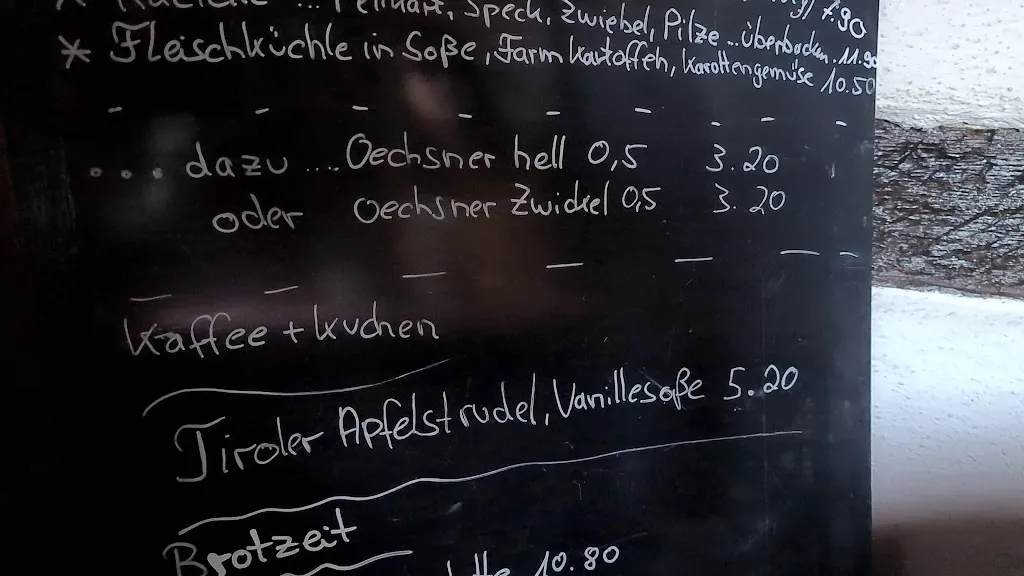 ... Speck, Zwiebel, Pilze .. überbacken . 11.90
7.90
* Fleischküchle in Soße, Farm Kartoffeln, Karottengemüse 10.50
... dazu .... Oechsner hell 0,5 3.20
oder Oechsner Zwickel 0,5 3.20
Kaffee + Kuchen
Tiroler Apfelstrudel, Vanillesoße 5.20
Brotzeit
10.80